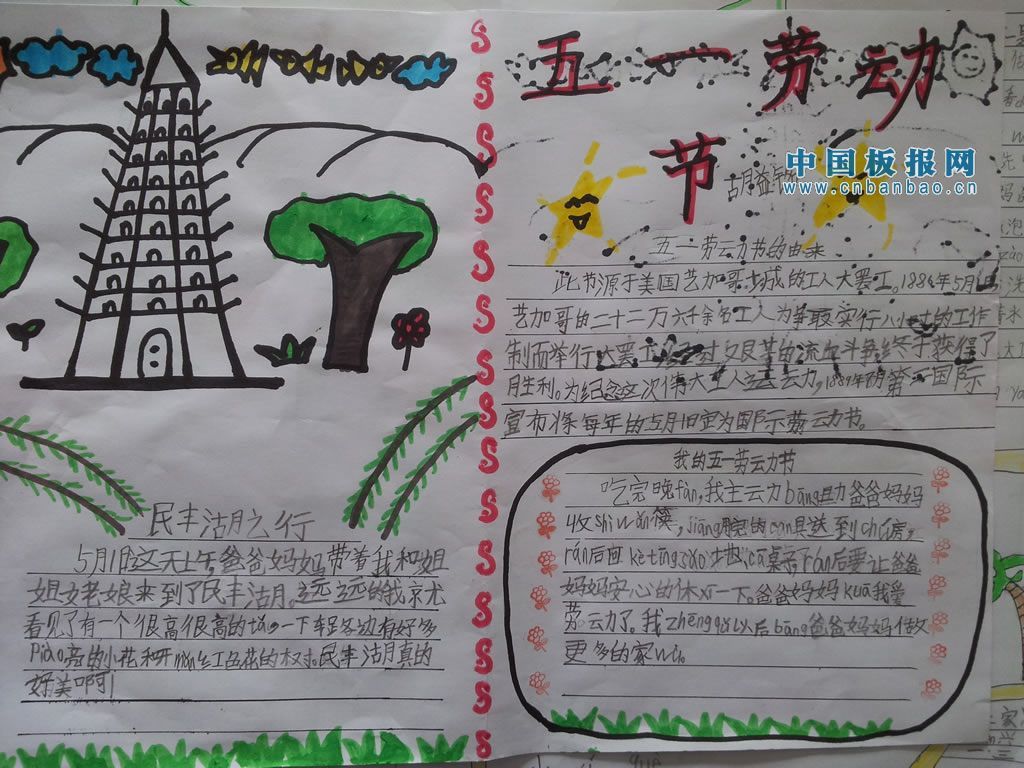 五一劳动
节
中国板报网
www.cnbanbao.cn
五一劳动节的由来
此节源于美国艺加哥城的工人大罢工。1884年5月1日
艺加哥的二十二万六千余名工人为争取实行八小时的工作
制而举行大罢工 流血斗争终于获得了
月生利。为纪念这次伟大工人运动，1889年 第二国际
宣布将每年的5月1日定为国际劳动节。
我的五一劳动节
吃完晚fàn，我主动bāng助爸爸妈妈
收shi wǎn筷，
后回kètīng sǎo地，cā桌子 后要让爸爸
妈妈安心的休xi一下。爸爸妈妈kuā我爱
劳动了。我 以后bāng爸爸妈妈做
更多的家wù。
民丰沽月之行
5月1日这天上午爸爸妈妈带着我和姐
姐 老娘来到了民丰沽月。远远的我京尤
看见了有一个很高很高的tǎ 一下车足各边有好多
Piào亮的小花和开 红色花的木对。民丰沽月真的
好美啊！